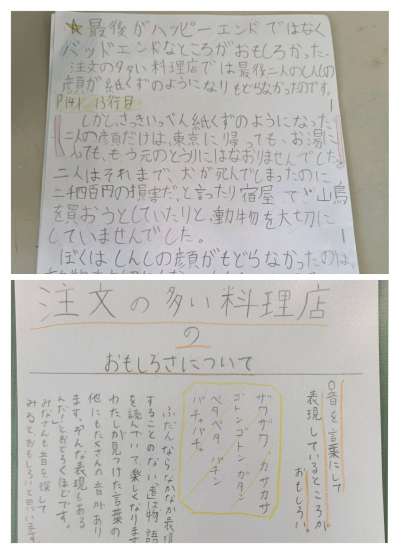 ☆最後がハッピーエンドではなく
バッドエンドなところがおもしろかった。
注文の多い料理店では最後二人のしんしの
顔が紙くずのようになりもどらなかったのです。
P141 13行目
しかしさっきいっぺん紙くずのようになった
二人の顔だけは、東京に帰っても、お湯に
んても、もう元のとうりにはなおりませんでした。
二人はそれまで、犬が死んでしまったのに
二千四百円の損まだ。と言ったり宿屋で山鳥
を買おうとしていたりと、動物を大切に
していませんでした。
ぼくはしんしの顔がもどらなかったのは、
注文の多い料理店
の
おもしろさについて
○音を言葉にして
表現しているところが
おもしろい。
ザワザワ、カサカサ
ゴトンゴトンガタン
ペタペタ、パチン
パチャパチャ。
ふだんならなかなか表現
することのない音は物語
を読んでいて楽しくなります
わたしが見つけた言葉の
他にもたくさんの音があり
ます。こんな表現もある
んだ!とおどろくほどです。
みなさんも音を探して
みるとおもしろいと思います